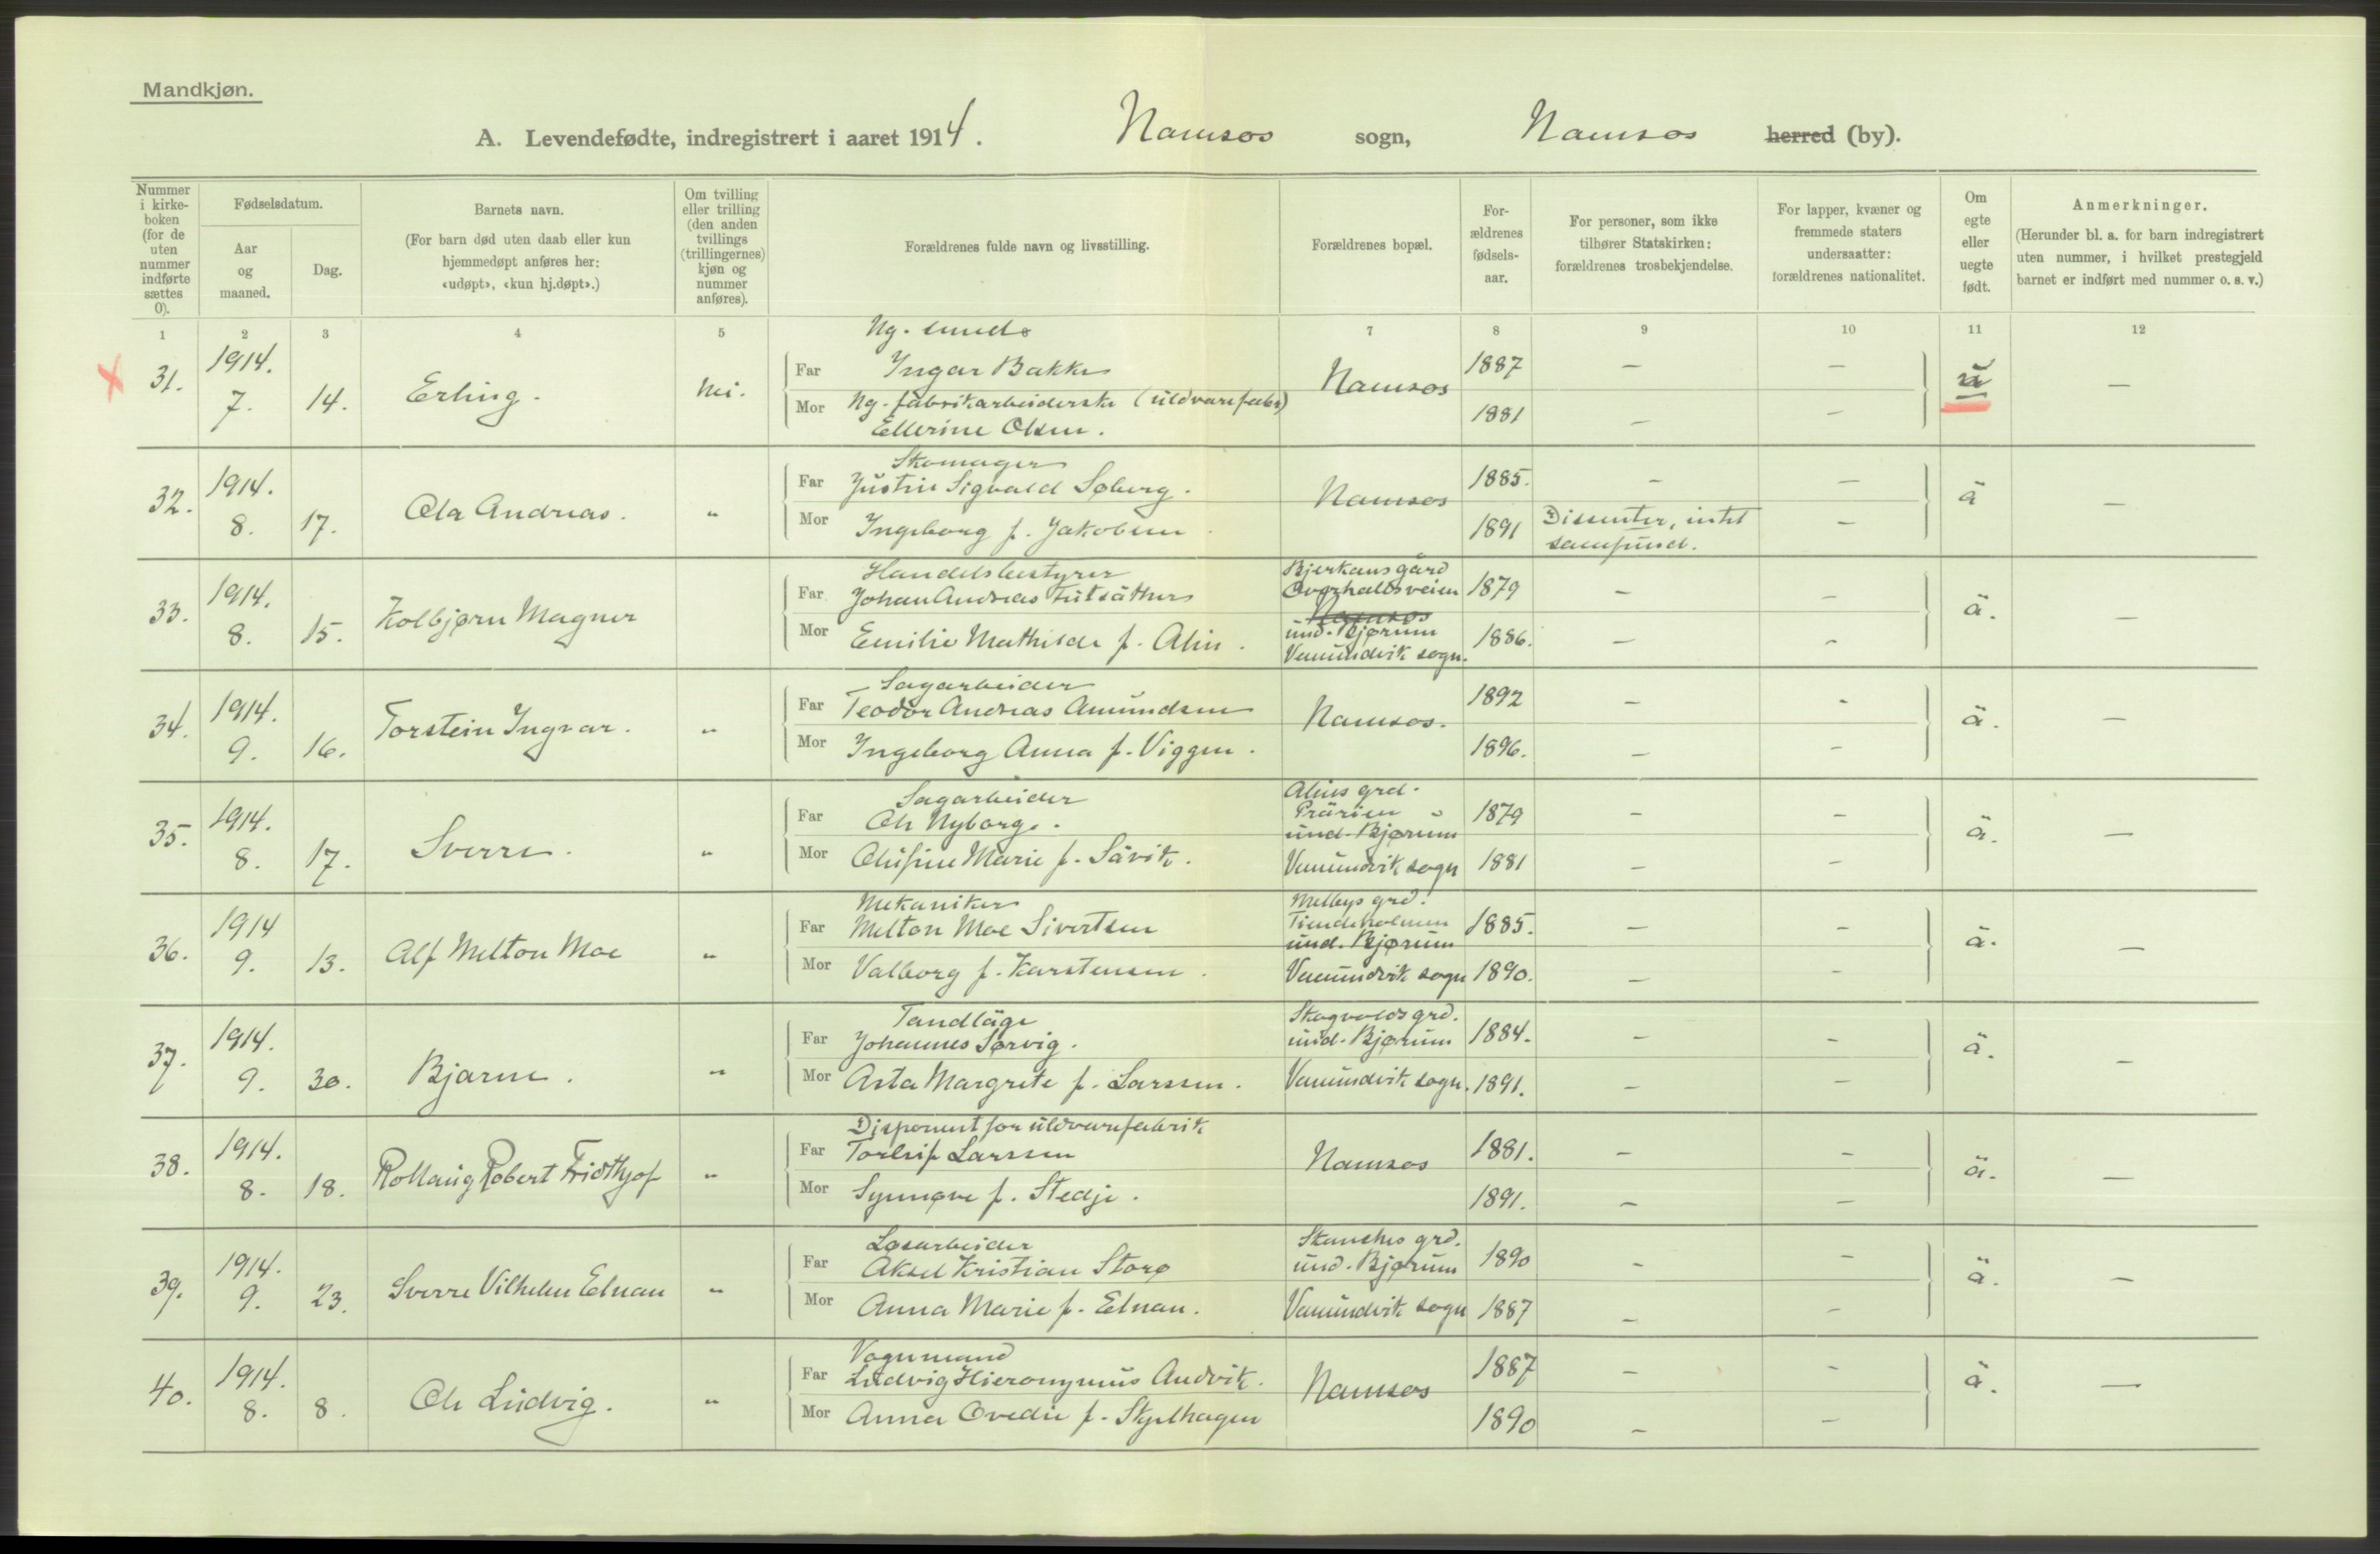 Mandkjøn.
A. Levendefødte, indregistrert i aaret 1914. Namsos sogn, Namsos herred (by).
Nummer i kirkeboken (for de uten nummer indførte sættes 0).
Fødselsdatum.
Aar og maaned.
Dag.
Barnets navn.
(For barn død uten daab eller kun hjemmedøpt anføres her: «udøpt», «kun hj.døpt».)
Om tvilling eller trilling (den anden tvillings (trillingernes) kjøn og nummer anføres).
Forældrenes fulde navn og livsstilling.
Forældrenes bopæl.
Forældrenes fødselsaar.
For personer, som ikke tilhører Statskirken: forældrenes trosbekjendelse.
For lapper, kvæner og fremmede staters undersaatter: forældrenes nationalitet.
Om egte eller uegte født.
Anmerkninger.
(Herunder bl. a. for barn indregistrert uten nummer, i hvilket prestegjeld barnet er indført med nummer o. s. v.)
1 2 3 4 5 7 8 9 10 11 12
31. 1914. 7. 14. Erling. Nei.
Ug. smed
Far Ingar Bakke Namsos 1887 — — u —
Mor Ug. fabrikarbeiderske (uldvarefabr)
Ellerine Olsen. 1881 — —
32. 1914. 8. 17. Ola Andreas. "
Skomager
Far Justin Sigvald Søberg. Namsos 1885. — — ä —
Mor Ingeborg f. Jakobsen 1891 Dissenter, intet samfund. —
33. 1914. 8. 15. Kolbjørn Magner
Handelsbestyrer
Far Johan Andreas 1879 — — ä. —
Mor Emilie Mathilde f. Alin. 1886. — —
Bjerkansgård
Overhallsveien
Namsos
und. Bjørum
Vemundvik sogn.
34. 1914. 9. 16. Torstein Ingvar. "
Sagarbeider
Far Teodor Andreas Amundsen Namsos. 1892 — - ä. —
Mor Ingeborg Anna f. Viggen. 1896. — —
35. 1914. 8. 17. Sverre. "
Sagarbeider
Far Ole Nyborg. 1879 — — ä. —
Mor Olufine Marie f. Sävik. 1881 — —
Alins grd.
Prärien
und. Bjørum
Vemundvik sogn
36. 1914 9. 13. Alf Melton Moe "
Mekaniker
Far Melton Moe Sivertsen 1885. — — ä. —
Mor Valborg f. Karstensen. 1890. — —
Mellbys grd.
Tiendeholmen
und. Bjørum
Vemundvik sogn
37. 1914. 9. 30. Bjarne. "
Tandläge
Far Johannes Sørvig. 1884. — — ä. —
Mor Asta Margrete f. Larssen. 1891. — —
Skogvolds grd.
und. Bjørum
Vemundvik sogn.
38. 1914. 8. 18. Rollaug Robert Fridthjof "
Disponent for uldvarefabrik
Far Torleif Larssen Namsos 1881. — — ä. —
Mor Synnøve f. Stedje. 1891. — —
39. 1914. 9. 23. Sverre Vilhelm Elnan "
Løsarbeider
Far Aksel Kristian Storø 1890 — — ä. —
Mor Anna Marie f. Elnan. 1887 — —
grd.
und. Bjørum
Vemundvik sogn
40. 1914. 8. 8. Ole Ludvig. "
Vognmand
Far Ludvig Hieronymus Andvik. Namsos 1887 — — ä. —
Mor Anna Ovedie f. Skjelhagen 1890 — —